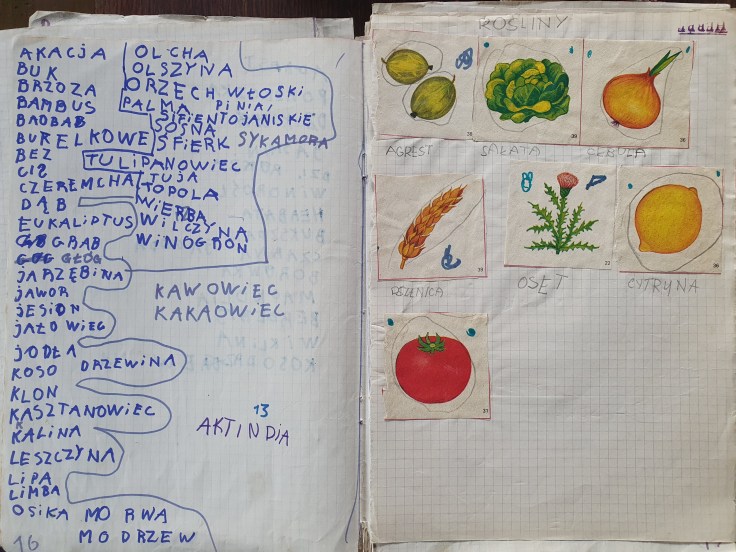 AKACJA
BUK
BRZOZA
BAMBUS
BAOBAB
BURELKOWE
BEZ
CIS
CZEREMCHA
DĄB
EUKALIPTUS
GRAB
GŁÓG
JARZĘBINA
JAWOR
JESION
JAŁOWIEC
JODŁA
KOSO DRZEWINA
KLON
KASZTANOWIEC
KALINA
LESZCZYNA
LIPA
LIMBA
OSIKA MORWA
MODRZEW
16
OLCHA
OLSZYNA
ORZECH WŁOSKI
PALMA PINIA
SIFIENTOJANISKIE
SOSNA
SFIERK SYKAMORA
TULIPANOWIEC
TUJA
TOPOLA
WIERBA
WILCZYNA
WINOGRON
KAWOWIEC
KAKAOWIEC
13
AKTINDIA
ROŚLINY
36
39
38
AGREST SAŁATA CEBULA
33
36
PSZENICA OSĘT CYTRYNA
31